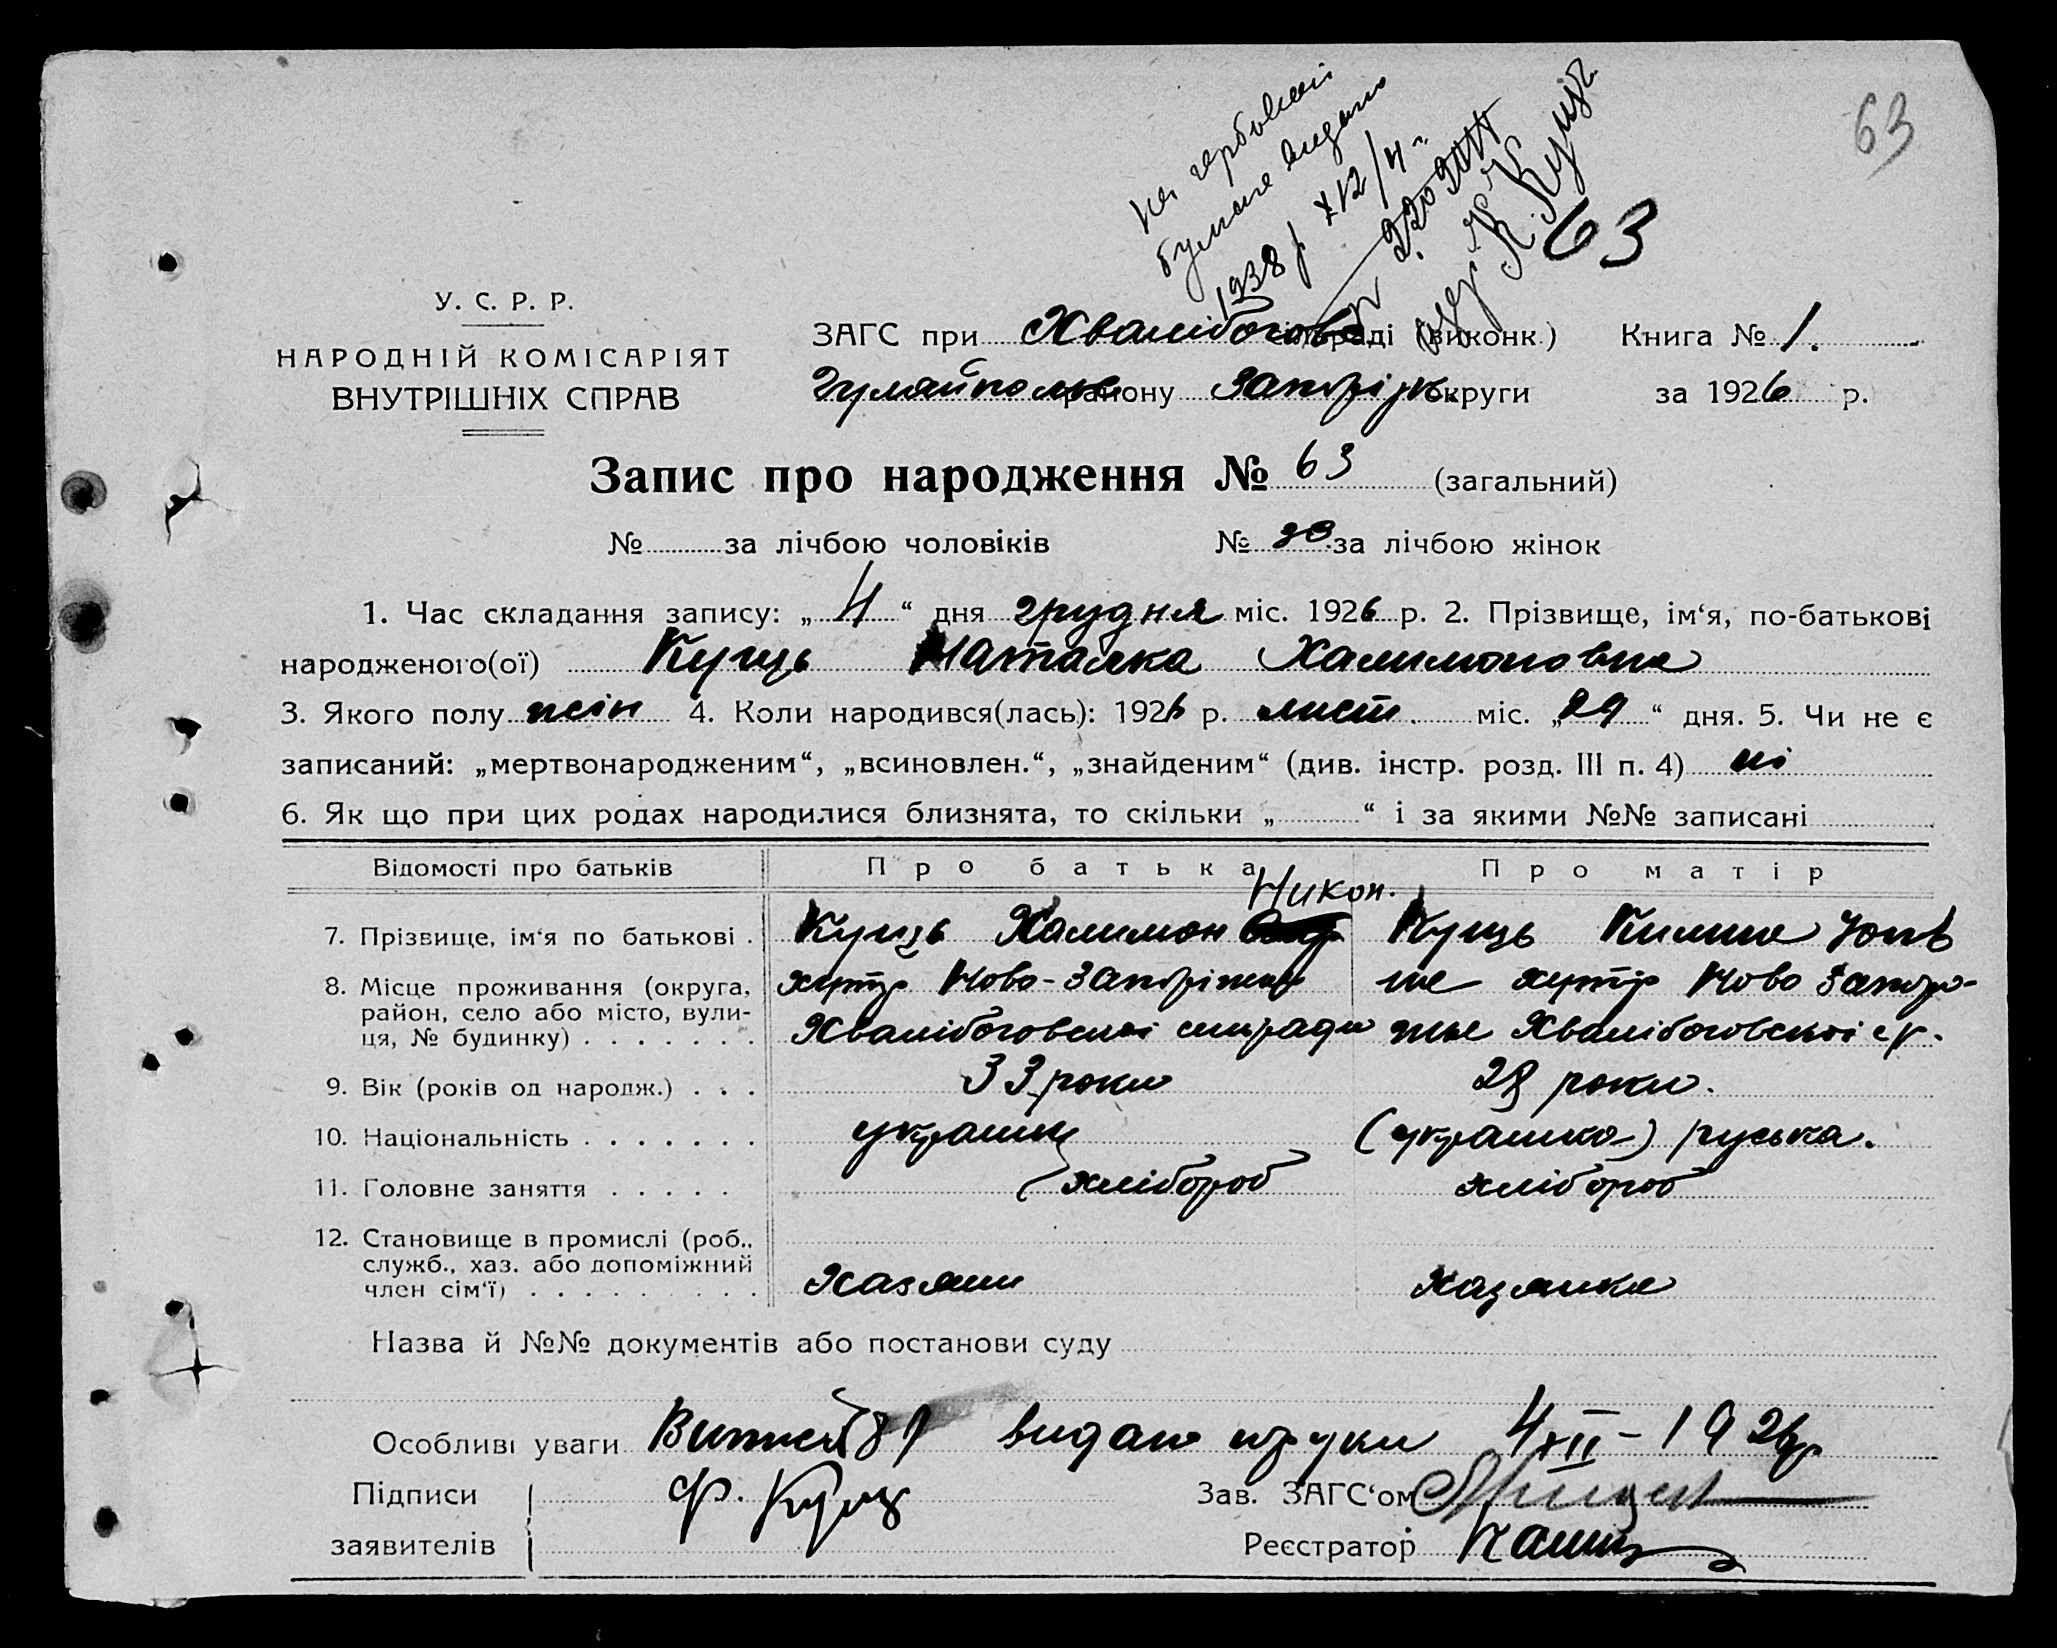 63
на гербовой
бумаге видано
1938 р XII/4
63
У. С. Р. Р.
НАРОДНІЙ КОМІСАРІЯТ
ВНУТРІШНІХ СПРАВ
ЗАГС при Хвалібогов сільраді (виконк.) Книга № 1.
Гуляйпольс району Запоріж. округи за 1926 р.
Запис про народження № 63 (загальний)
№ за лічбою чоловіків № 30 за лічбою жінок
1. Час складання запису: „4“ дня грудня міс. 1926 р. 2. Прізвище, ім‘я, по-батькові
народженого(ої) Куць Наталка Халимоновна
3. Якого полу жін 4. Коли народився(лась): 1926 р. лист. міс. „29“ дня. 5. Чи не є
записаний: „мертвонародженим“, „всиновлен.“, „знайденим“ (див. інстр. розд. III п. 4) ні
6. Як що при цих родах народилися близнята, то скільки „ “ і за якими №№ записані
Відомості про батьків Про батька Про матір
Никон.
7. Прізвище, ім‘я по батькові . Куць Халимон Куць Килина
8. Місце проживання (округа, район, село або місто, вулиця, № будинку) . . . . . . . хутір Ново-Запоріжжя хутір Ново Запоро-
Хвалібоговської сільради жье Хвалібоговської с/р.
9. Вік (років од народж.) . . . 33 роки 28 роки.
10. Національність . . . . . . . українц (українка) руська.
11. Головне заняття . . . . . хлібороб хлібороб
12. Становище в промислі (роб., служб., хаз. або допоміжний член сім‘ї) . . . . . . . . . хазяин хазяйка
Назва й №№ документів або постанови суду
Особливі уваги видано на руки 4 XII – 1926 р
Підписи заявителів Ф. Куць
Зав. ЗАГС‘ом
Реєстратор